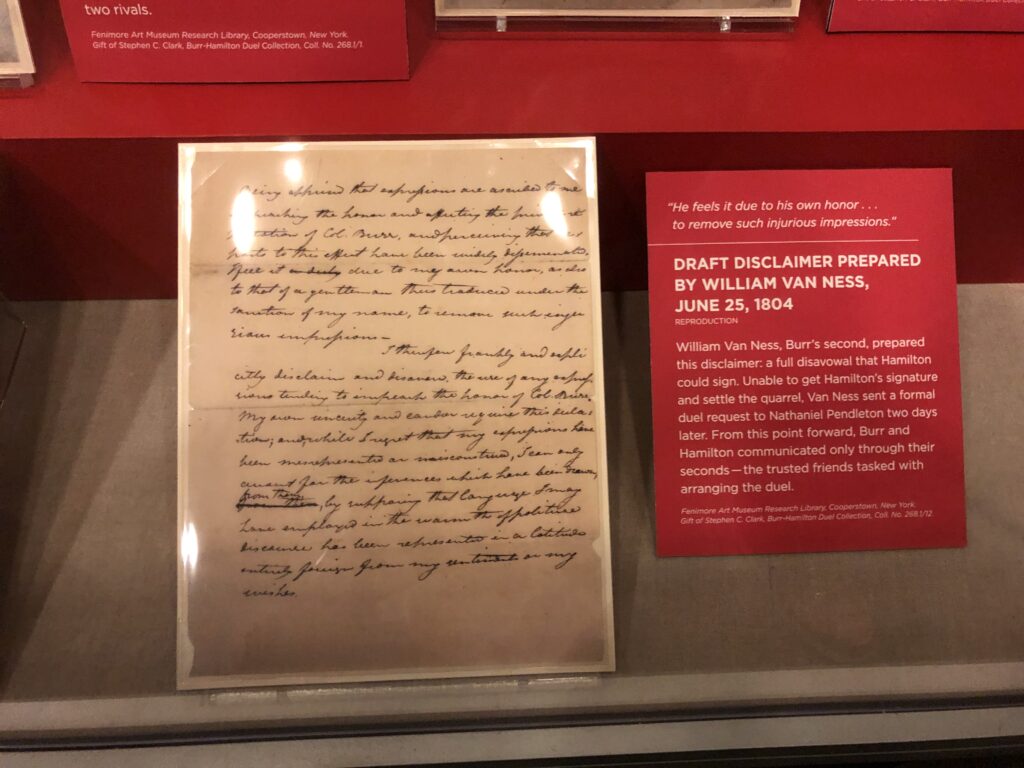 two rivals.
Fenimore Art Museum Research Library, Cooperstown, New York.
Gift of Stephen C. Clark, Burr-Hamilton Duel Collection, Coll. No. 268.1/1.
Being apprised that expressions are ascribed to me
the honor and affecting the
of Col. Burr, and perceiving that
to this effect have been widely disseminated,
I feel it due to my own honor, as also
to that of a gentleman thus traduced under the
sanction of my name, to remove such inju
rious impressions—
I therefore frankly and expli
citly disclaim and disavow, the use of any expres
sions tending to impeach the honor of Col. Burr.
My own sincerity and candor require this decla
ration; and while I regret that my expressions have
been misrepresented or misconstrued, I can only
account for the inferences which have been drawn,
from them
from them, by supposing that language I may
have employed in the warmth of political
discourse has been represented in a latitude
entirely foreign from my sentiments or my
wishes.
“He feels it due to his own honor . . .
to remove such injurious impressions.”
DRAFT DISCLAIMER PREPARED
BY WILLIAM VAN NESS,
JUNE 25, 1804
REPRODUCTION
William Van Ness, Burr’s second, prepared
this disclaimer: a full disavowal that Hamilton
could sign. Unable to get Hamilton’s signature
and settle the quarrel, Van Ness sent a formal
duel request to Nathaniel Pendleton two days
later. From this point forward, Burr and
Hamilton communicated only through their
seconds—the trusted friends tasked with
arranging the duel.
Fenimore Art Museum Research Library, Cooperstown, New York.
Gift of Stephen C. Clark, Burr-Hamilton Duel Collection, Coll. No. 268.1/12.